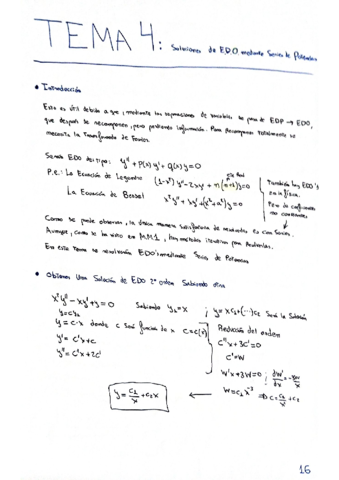 TEMA 4: Soluciones de EDO mediante Series de Potencias
• Introducción
Esto es útil debido a que, mediante las separaciones de variables se pasa de EDP → EDO,
que después se recomponen, pero perdiendo información. Para recomponer totalmente se
necesita la Transformada de Fourier.
Siendo EDO del tipo: y'' + P(x)y' + q(x)y = 0
P.e.: La Ecuación de Legendre (1-x²)y'' - 2xy' + n(n+1)y = 0
La Ecuación de Bessel x²y'' + xy' + (x²+a²)y = 0
También hay EDO's
en la física.
Pero de coeficientes
no constantes
Como se puede observar, la única manera satisfactoria de resolverlas es con Series.
Aunque, como se ha visto en MM1, hay métodos
En este Tema se resolverán EDO's mediante Series de Potencias
• Obtener Una Solución de EDO 2º orden Sabiendo otra
x²y'' - xy' + y = 0 Sabiendo y₁ = x ; y = xc₁ + (...)c₂ Será la Solución
y = c·x donde c Será función de x c = c(x)
y' = c'x + c
y'' = c''x + 2c'
Reducción del orden
c''x + 3c' = 0
c' = W
W'x + 3W = 0 ;
W = c₁x⁻³ ⇒ c = c₁/x² + c₂
y = c₁/x + c₂x ←
16